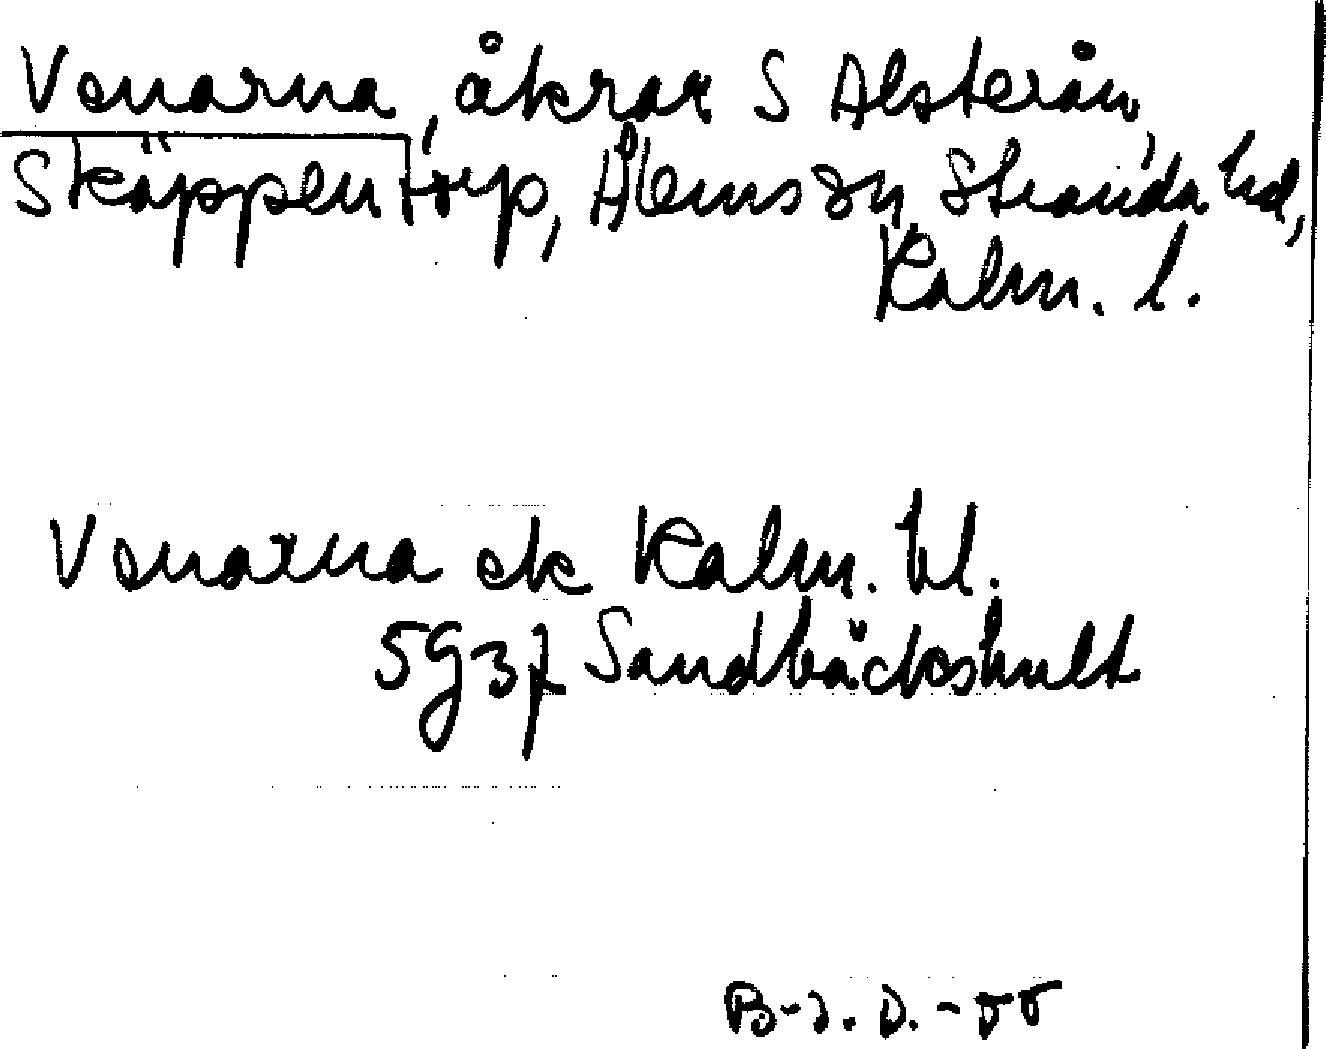 Venarna, åkrar S Alsterån,
Skäppentorp, Ålems sn, Stranda hd,
Kalm. l.
Venarna ek Kalm. bl.
5g37 Sandbäckshult
B-J. D. -55